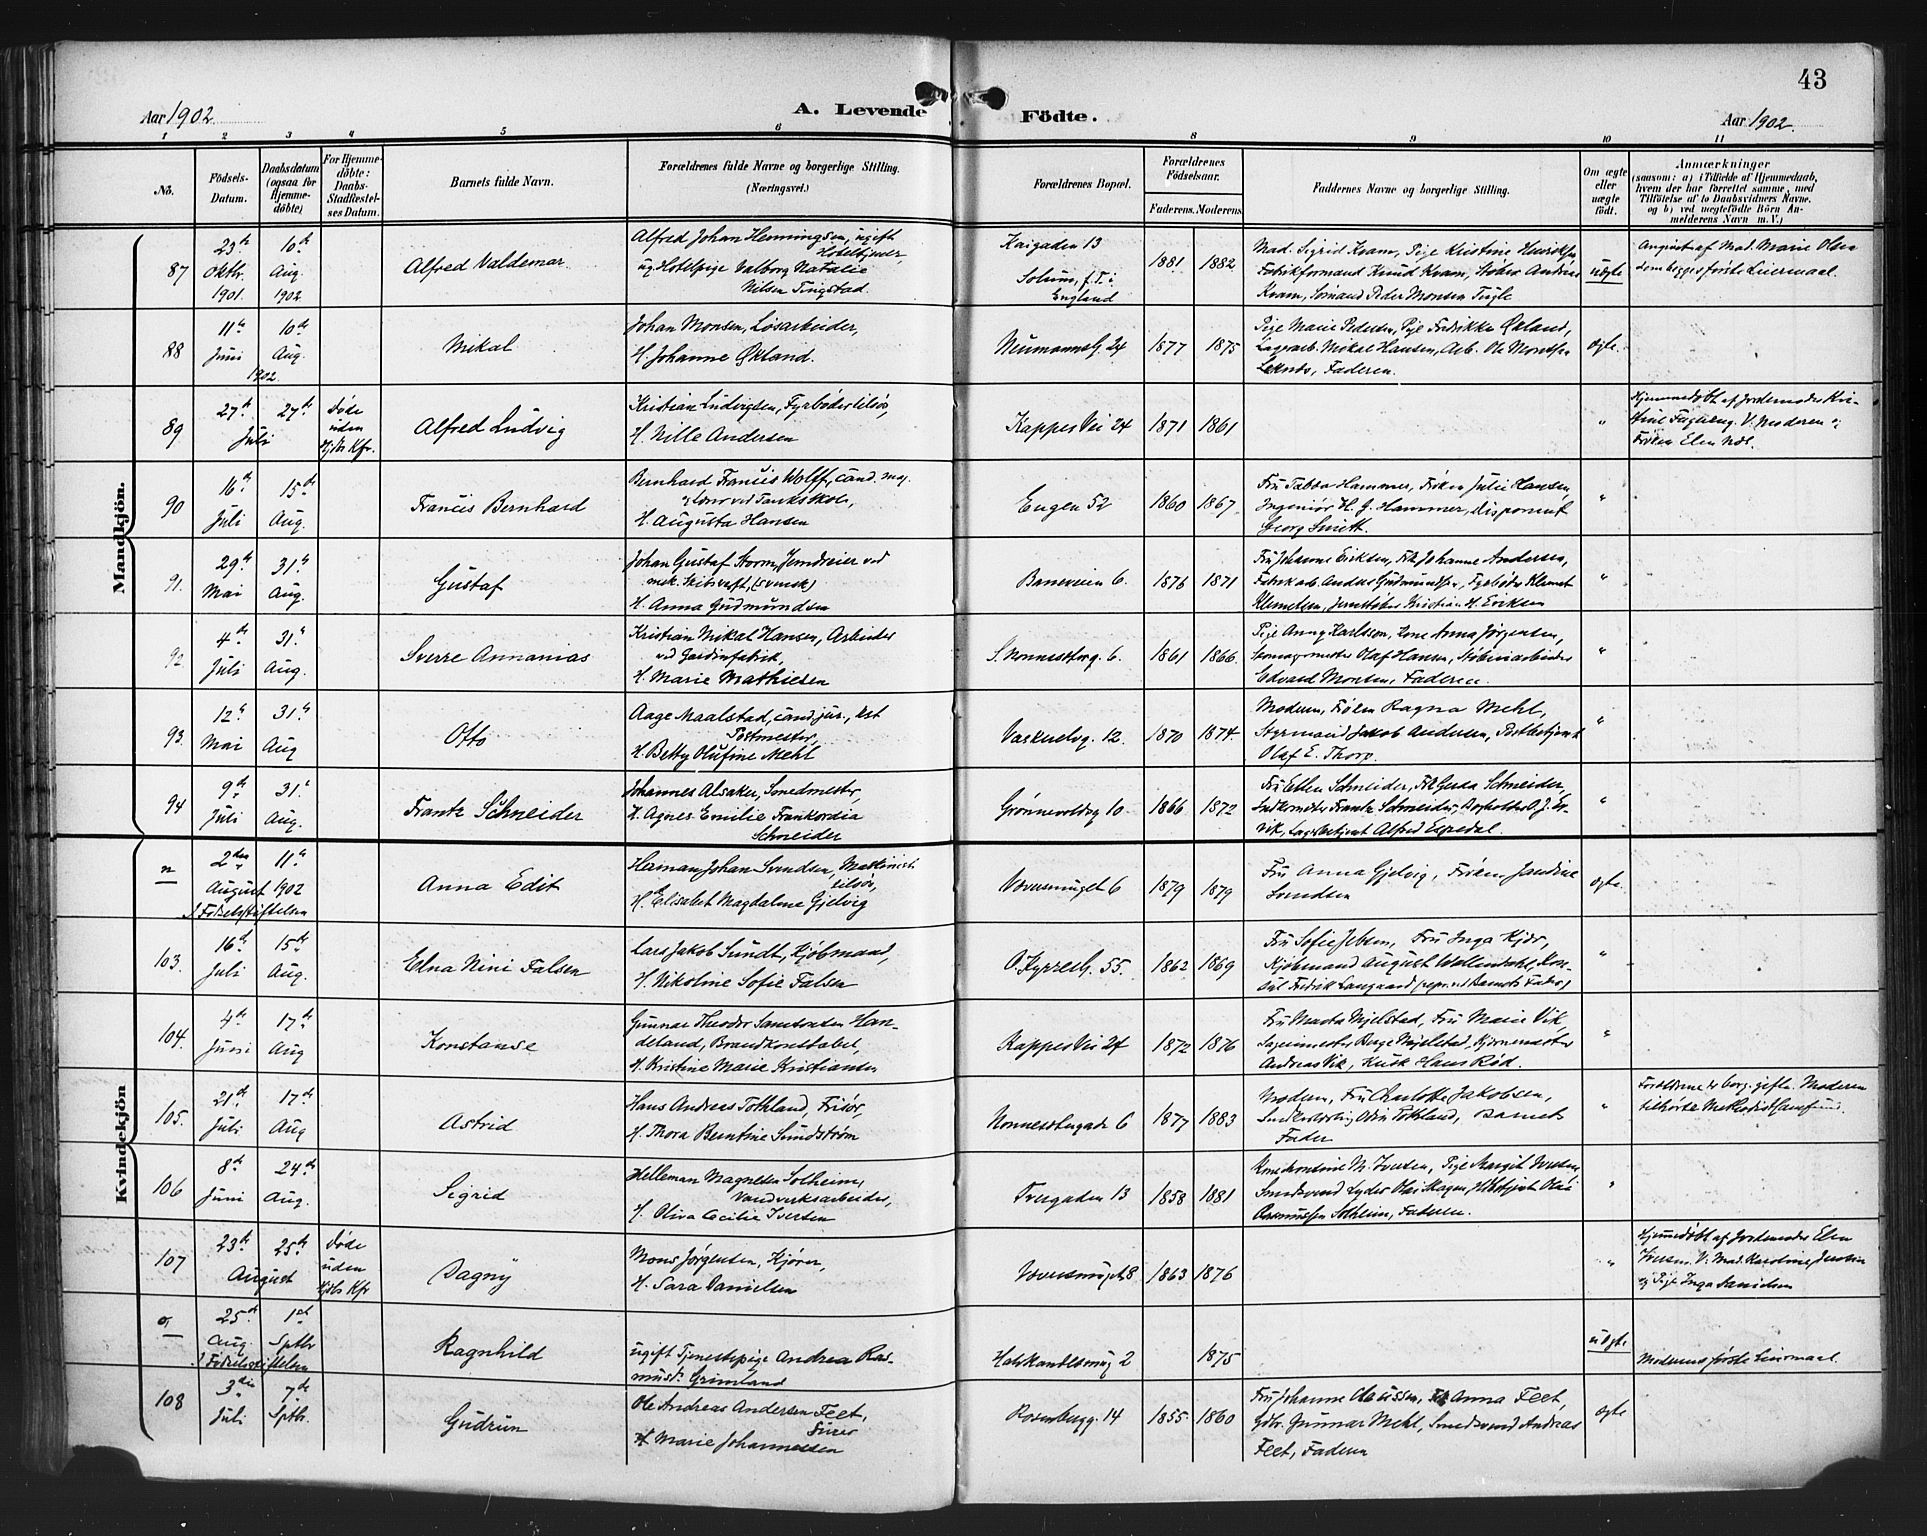 43
Aar 1902.
A. Levende Födte.
Aar 1902.
1 2 3 4 5 6 8 9 10 11
No.
Födsels-Datum.
Daabsdatum (ogsaa for Hjemme-döbte)
For Hjemme-döbte: Daabs-Stadfæstel-ses Datum.
Barnets fulde Navn.
Forældrenes fulde Navne og borgerlige Stilling. (Næringsvei.)
Forældrenes Bopæl.
Forældrenes Födselsaar.
Faderens. Moderens.
Faddernes Navne og borgerlige Stilling.
Om ægte eller uægte födt.
Anmærkninger
(saasom: a) i Tilfælde af Hjemmedaab,
hvem der har forrettet samme, med
Tilföielse af to Daabsvidners Navne.
og b) ved uægtefödte Börn An-
melderens Navn m. V.)
Mandkjön.
87
23de Oktbr. 1901.
10de Aug. 1902
Alfred Valdemar.
Alfred Johan Henningsen, ugift
Hotelkjener,
ug. Hotelpige Valborg Natalie
Nilsen Tingstad.
Kaigaden 13
Solum, f. T. i
England
1881 1882
Mad. Sigrid Kvam, Pige Kristine Henriksen
Fabrikformand Knud Kvam, Støber Andreas
Kvam, Sømand Peder Monsen
uægte
Angivet af Mad. Marie Olsen
som begges første Leiermaal.
88
11te Juni
10de Aug.
1902.
Mikal
Johan Monsen, Løsarbeider,
H. Johanne Økland.
Neumannsg. 24
1877 1875
Pige Marie Pedersen, Pige Fredrikke Økland,
Lagerarb. Mikal Hansen, Arb. Ole
Faderen.
ægte.
89
27de 27de
Juli
Døde uden Kfr.
Alfred Ludvig
Kristian Ludvigsen, Fyrbøder tilsøs,
H. Nille Andersen
Kappes Vei 24
1871 1861
"
Hjemmedøbt af Jordemoder Kri-
stine V. Moderen og
Frøken Elen
90
16de Juli
15de Aug.
Francis Bernhard
Bernhard Francis Wolff, cand. mag.
og Lærer ved Tankskolen,
H. Augusta Hansen
Engen 52
1860 1867
Fru Tabba Hammer, Frøken Julie Hansen,
Ingeniør H. J. Hammer, Disponent
Georg Smitt.
"
91.
29de Mai
31te Aug.
Gustaf
Johan Gustaf Storm, Jerndreier ved
mek. Skibsverft, (svensk)
H. Anna Gudmundsen
Baneveien 6.
1876 1871
Fru Johanne Eriksen, Frk. Johanne Andersen,
Fabrikarb. Andreas Gudmundsen, Fyrbøder Klemet
Klemetsen, Jernstøber Kristian H. Eriksen
"
92.
4de Juli
31te Aug.
Sverre Annanias
Kristian Mikal Hansen, Arbeider
ved Gardinfabrik,
H. Marie Mathiesen
S. Nonnestterg. 6.
1861 1866.
Pige Anny Karlsson, Kone Anna Jørgensen,
Skomagermester Olaf Hansen, Støberiarbeider
Edvard Monsen, Faderen.
"
93.
12te Mai
31te Aug
Otto
Aage Maalstad, cand. jur., kst
Postmester,
H. Betty Olufine Mehl
Vaskerelvg. 12.
1870 1874.
Moderen, Frøken Ragna Mehl,
Styrmand Jakob Andersen, Postbetjent
Olaf E. Thorp.
"
94
9de Juli
31te Aug.
Frantz Schneider
Johannes Alsaker, Smedmester,
H. Agnes Emilie Frankordia
Schneider
Grønnevoldsg 10
1866 1872
Fru Ellen Schneider, Frk. Gerda Schneider,
Frantz Schneider, Bogholder O. J.
Lagerbetjent Alfred Egedal.
"
Kvindekjön
n
2den 11te
August 1902
I Fødselsstiftelsen
Anna Edit
Herman Johan Svendsen, Maskinist
tilsøs,
H. Elisabet Magdalene Gjelvig
Væversmuget 6
1879 1879
Fru Anna Gjelvig, Frøken Jandine
Svendsen
ægte.
103.
16de Juli
15de Aug.
Elna Nini Falsen
Lars Jakob Sundt, Kjøbmand,
H. Nikoline Sofie Falsen
O. Kyrresg. 55.
1862 1869
Fru Sofie Jebsen, Fru Inga Kjær,
Kjøbmand August Wallendahl, Kon-
sul Fredrik Langaard repr. ved Barnets Fader
"
104.
4de Juni
17de Aug
Konstanse
Gunnar Theodor Samsonsen Han-
deland, Brandkonstabel,
H. Kristine Marie Kristiansen
Kappes Vei 24
1872 1876
Fru Marta Mjelstad, Fru Marie Vik,
Berge Mjelstad, Gjørnermester
Andreas Vik, Kusk Hans Rød.
"
105.
21de Juli
17de Aug
Astrid
Hans Andreas Tothland, Frisør,
H. Thora Berntine Sundstrøm
Nonnesttergade 6
1877 1883
Moderen, Fru Charlotte Jakobsen,
Odin Tothland, Barnets
Fader
"
Forældrene er borg. gifte. Moderen
tilhører Methodistsamfund.
106
8de Juni
24de Aug.
Sigrid
Helleman Magnesen Solheim,
Vandverksarbeider,
H. Oliva Cecilie Iversen
Tvergaden 13
1858 1881
M. Iversen, Pige Margit Iversen
Smedsvend Lyder Olai Skagen, Olai
Rasmussen Solheim, Faderen.
"
107
23de 25de
August
Døde uden Kfr
Dagny
Mons Jørgensen, Kjører,
H. Sara Danielsen
Væversmuget 8
1863 1876
"
Hjemmedøbt af Jordemoder Elen
Iversen. V. Mad. Karoline Jensen
og Pige Inga Danielsen
o,
25de Aug.
1ste Sptbr
I Fødselsstiftelsen
Ragnhild
ugift Tjenestepige Andrea Ras-
musd. Grimland
Halskandlsmug 2
1875
uægte
Moderens første Leiermaal.
108
3die Juli
7de Sptbr.
Gudrun
Ole Andreas Andersen Feet,
Fører
H. Marie Johannessen
Rosenbergg. 14
1855. 1860
Fru Johanne Olaussen, Frk. Anna Feet,
Gdbr. Gunnar Mehl, Smedsvend Andreas
Feet, Faderen
ægte